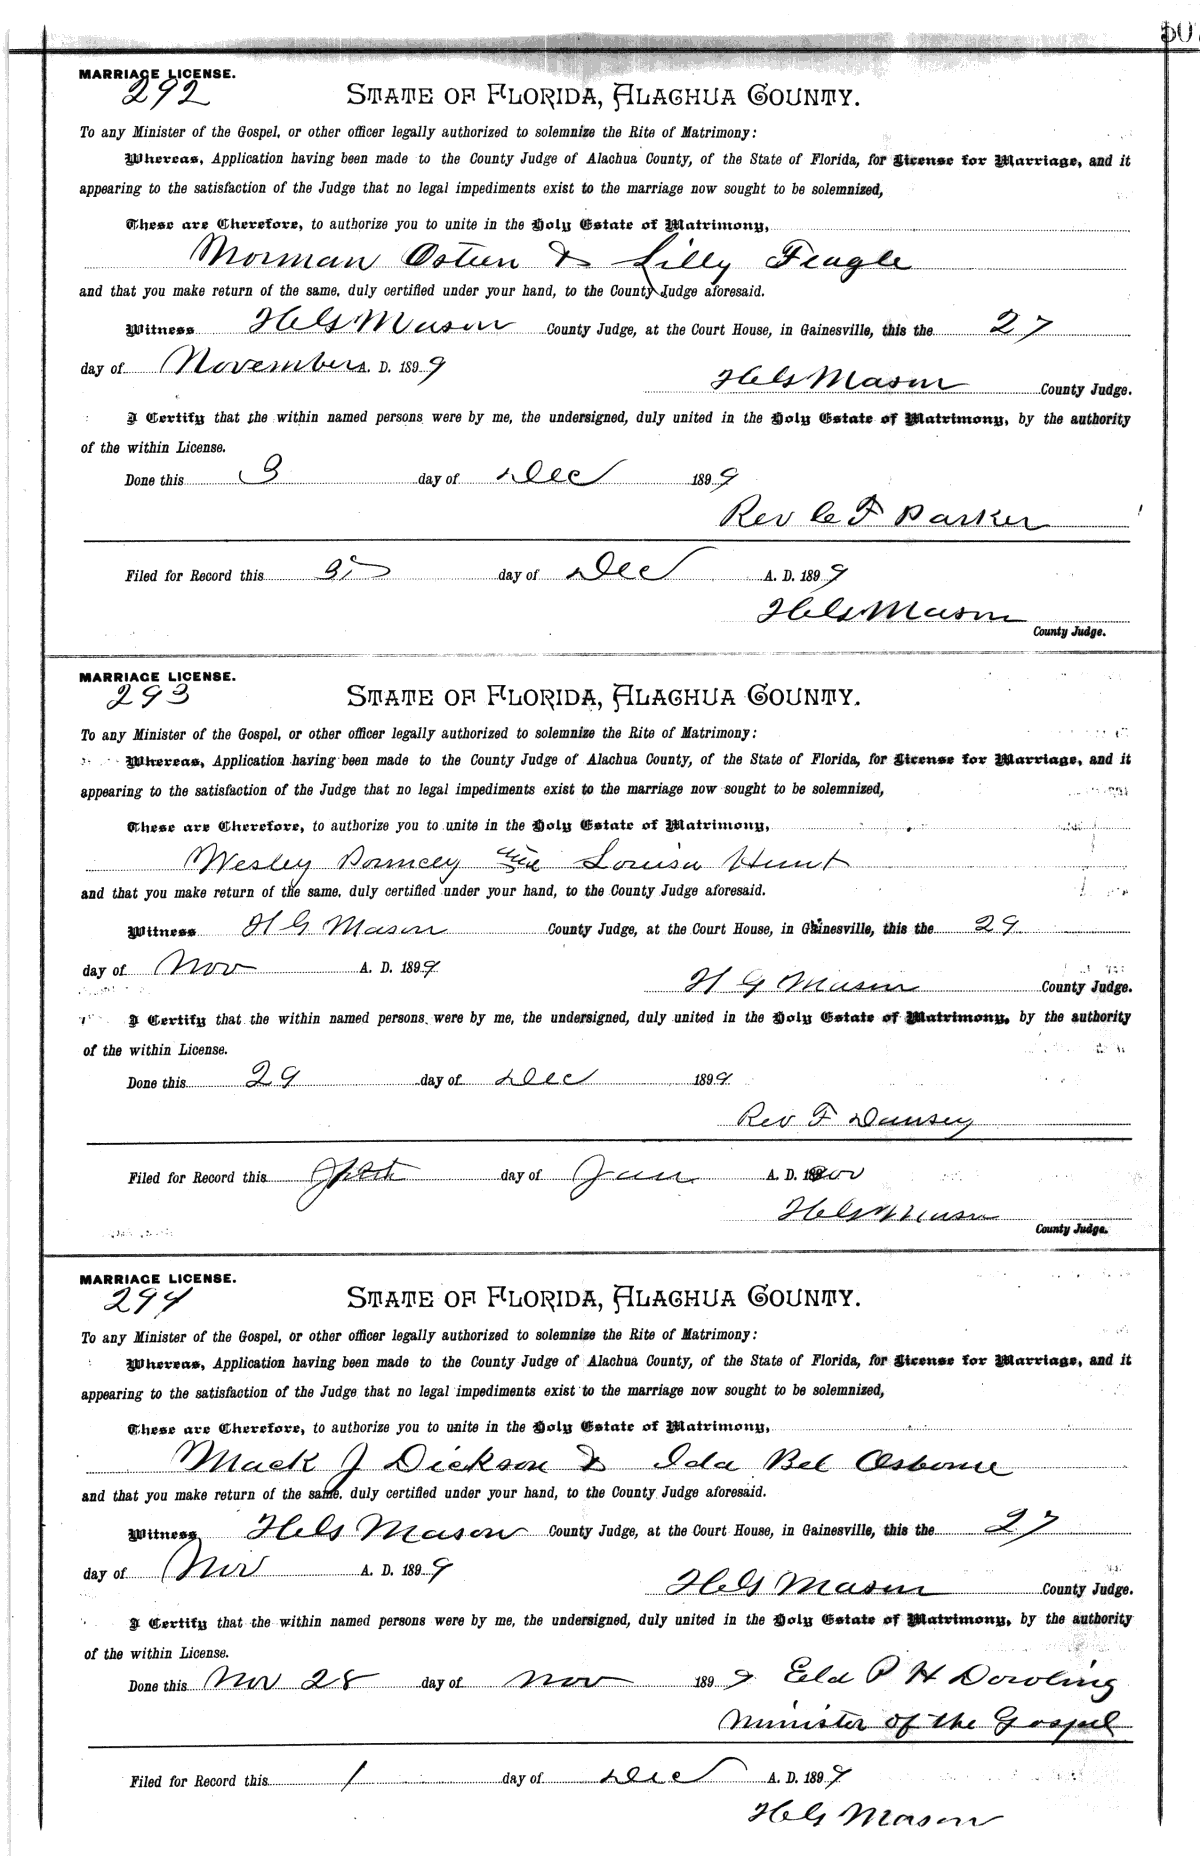 507
MARRIAGE LICENSE.
292
STATE OF FLORIDA, ALACHUA COUNTY.
To any Minister of the Gospel, or other officer legally authorized to solemnize the Rite of Matrimony:
Whereas, Application having been made to the County Judge of Alachua County, of the State of Florida, for License for Marriage, and it
appearing to the satisfaction of the Judge that no legal impediments exist to the marriage now sought to be solemnized,
These are Therefore, to authorize you to unite in the Holy Estate of Matrimony,
Morman Osteen & Lilly Feagle
and that you make return of the same, duly certified under your hand, to the County Judge aforesaid.
Witness H G Mason County Judge, at the Court House, in Gainesville, this the 27
day of November A. D. 1899
H G Mason County Judge.
I Certify that the within named persons were by me, the undersigned, duly united in the Holy Estate of Matrimony, by the authority
of the within License.
Done this 3 day of Dec 1899
Rev C F Parker
Filed for Record this day of Dec A. D. 1899
H G Mason
County Judge.
MARRIAGE LICENSE.
293
STATE OF FLORIDA, ALACHUA COUNTY.
To any Minister of the Gospel, or other officer legally authorized to solemnize the Rite of Matrimony:
Whereas, Application having been made to the County Judge of Alachua County, of the State of Florida, for License for Marriage, and it
appearing to the satisfaction of the Judge that no legal impediments exist to the marriage now sought to be solemnized,
These are Therefore, to authorize you to unite in the Holy Estate of Matrimony,
Wesley Pouncey and Louisa Hunt
and that you make return of the same, duly certified under your hand, to the County Judge aforesaid.
Witness H G Mason County Judge, at the Court House, in Gainesville, this the 29
day of Nov A. D. 1899
H G Mason County Judge.
I Certify that the within named persons were by me, the undersigned, duly united in the Holy Estate of Matrimony, by the authority
of the within License.
Done this 29 day of Dec 1899
Rev F Dansey
Filed for Record this day of Jan A. D. 1900
H G Mason
County Judge.
MARRIAGE LICENSE.
294
STATE OF FLORIDA, ALACHUA COUNTY.
To any Minister of the Gospel, or other officer legally authorized to solemnize the Rite of Matrimony:
Whereas, Application having been made to the County Judge of Alachua County, of the State of Florida, for License for Marriage, and it
appearing to the satisfaction of the Judge that no legal impediments exist to the marriage now sought to be solemnized,
These are Therefore, to authorize you to unite in the Holy Estate of Matrimony,
Mack J Dickson & Ida Bel Osborne
and that you make return of the same, duly certified under your hand, to the County Judge aforesaid.
Witness H G Mason County Judge, at the Court House, in Gainesville, this the 27
day of Nov A. D. 1899
H G Mason County Judge.
I Certify that the within named persons were by me, the undersigned, duly united in the Holy Estate of Matrimony, by the authority
of the within License.
Done this Nov 28 day of Nov 1899 Eld P H Dowling
Minister of the Gospel
Filed for Record this 1 day of Dec A. D. 1899
H G Mason